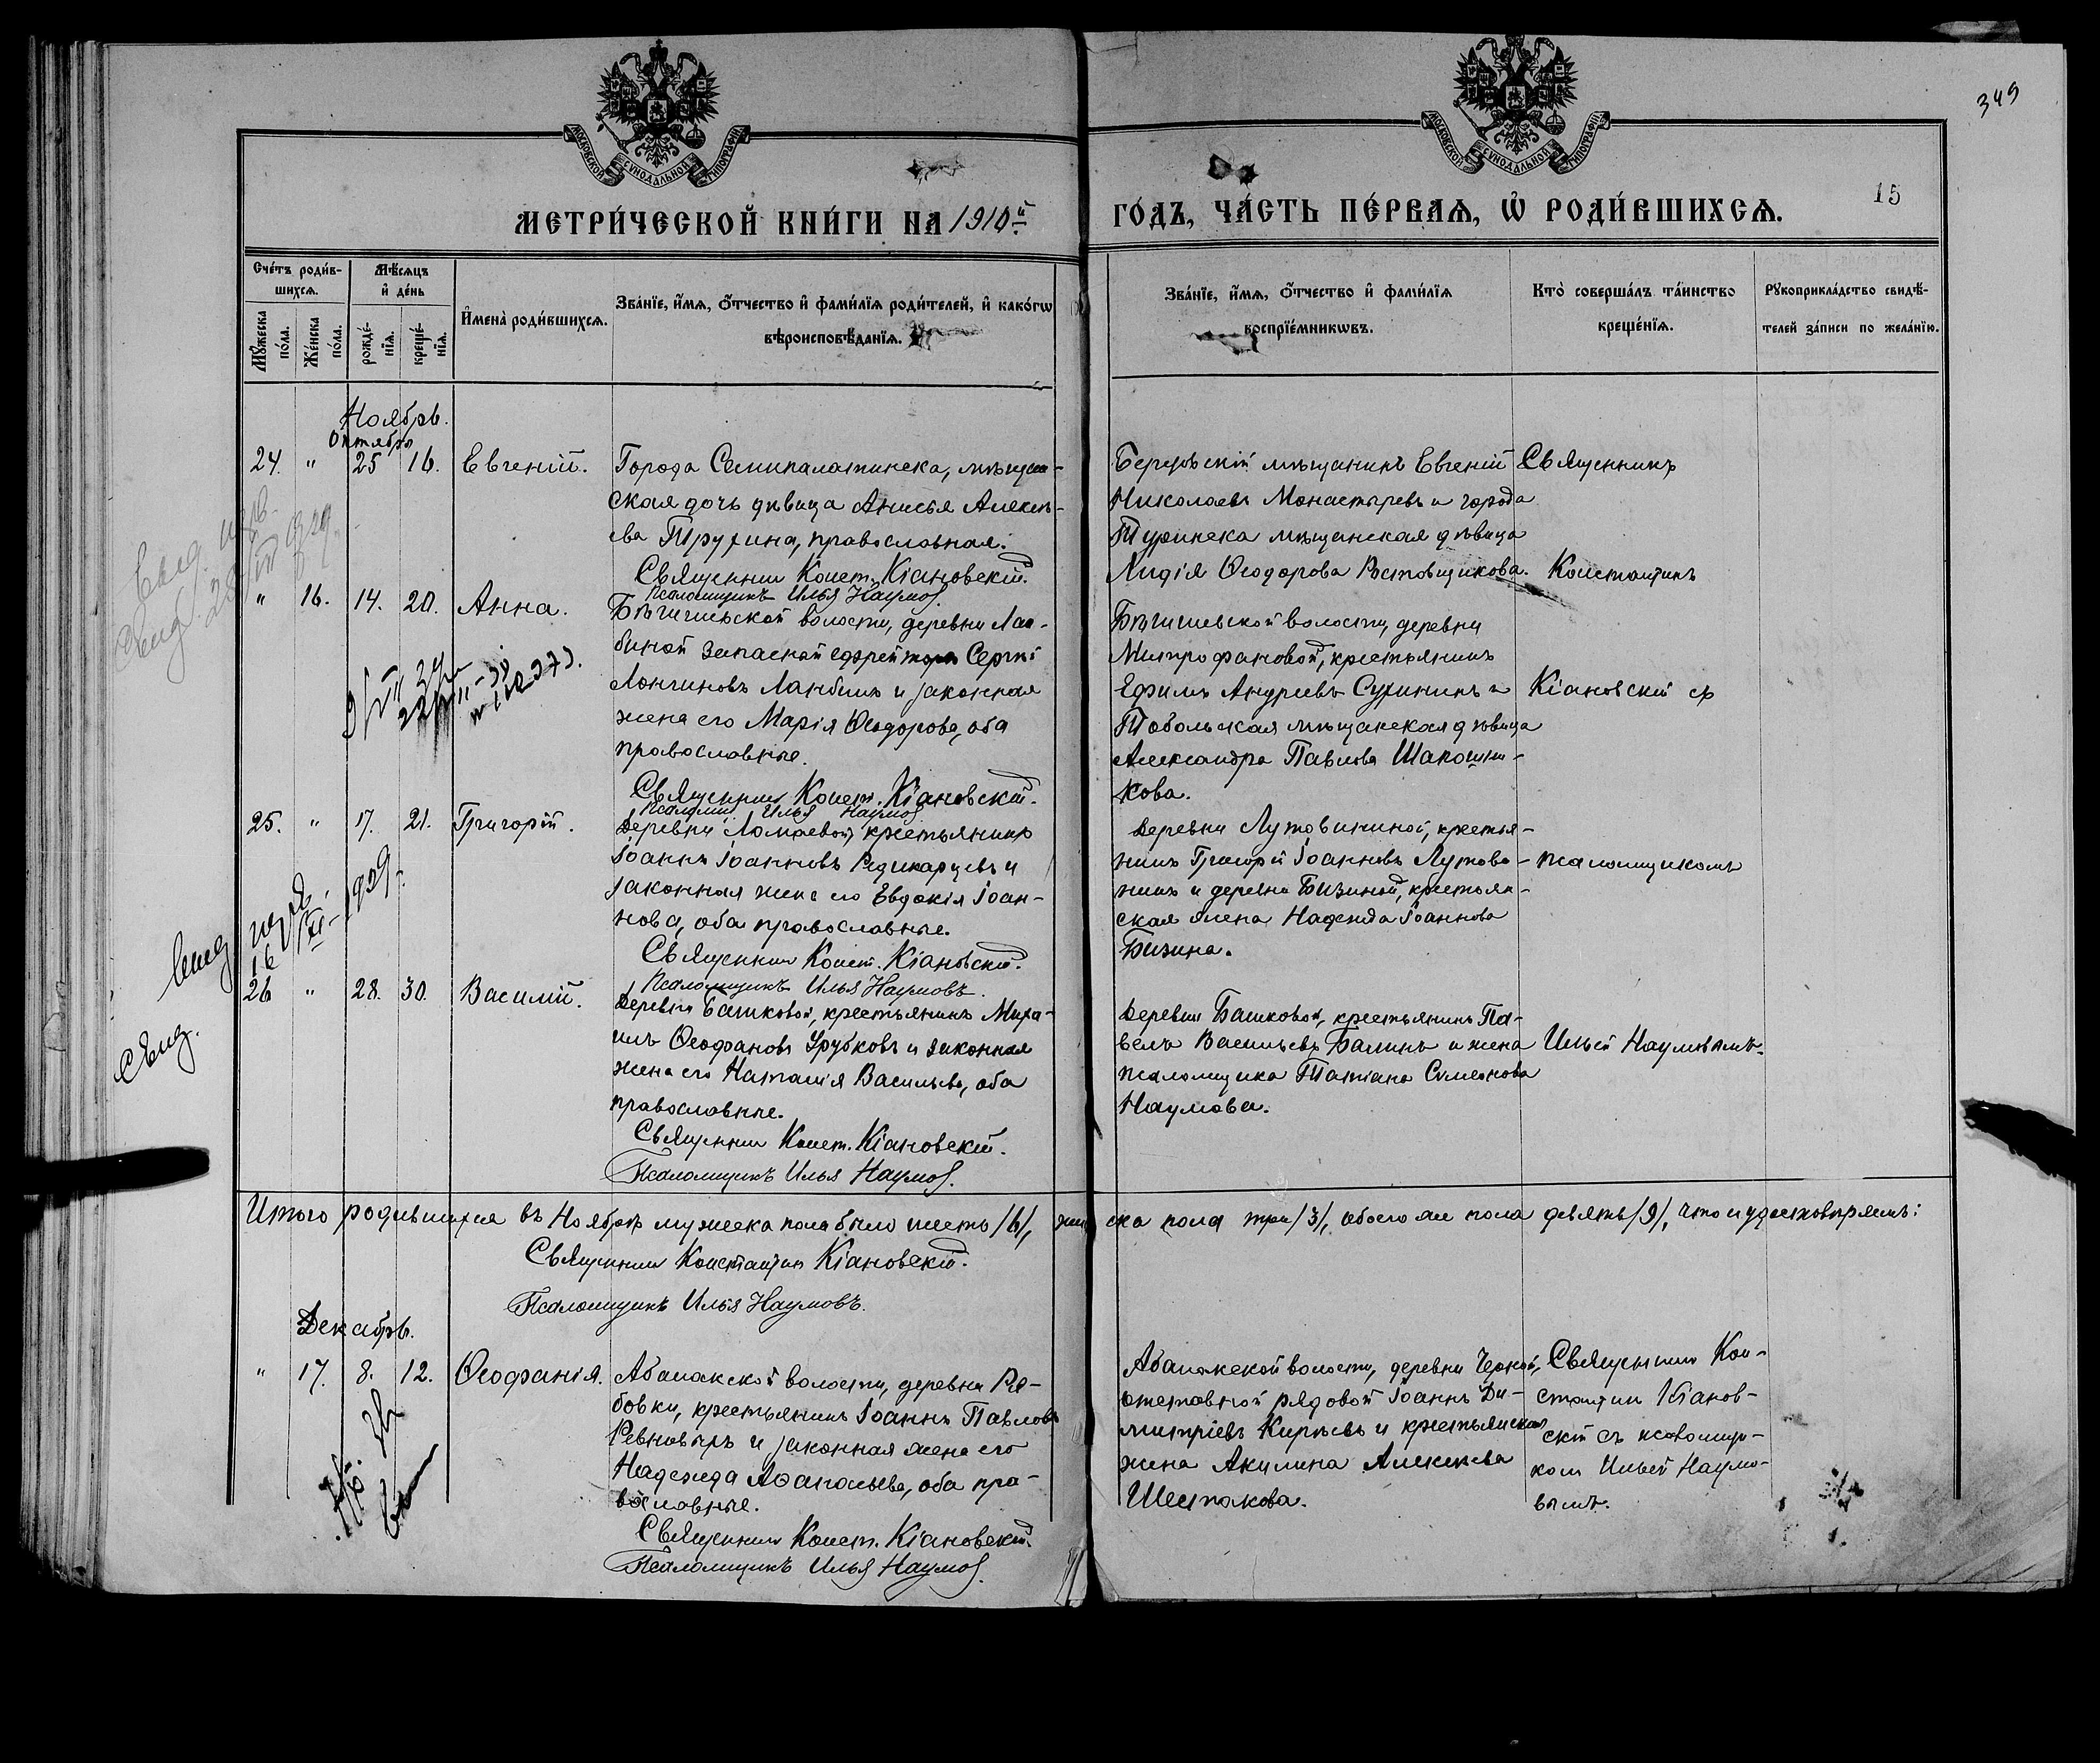 349
МОСКОВСКОЙ СѴНОДАЛЬНОЙ ТИПОГРАФІИ
МОСКОВСКОЙ СѴНОДАЛЬНОЙ ТИПОГРАФІИ
МЕТРИ́ЧЕСКОЙ КНИ́ГИ НА 1910й
ГО́ДЪ, ЧА́СТЬ ПЕ́РВАѦ, Ѡ҆ РОДИ́ВШИХСѦ.
15
Сче́тъ роди́в-
шихсѧ.
Мꙋ́жеска по́ла.
Же́нска по́ла.
Мѣ́сѧцъ
и҆ де́нь
рожде́-
нїѧ.
креще́-
нїѧ.
И҆мена̀ роди́вшихсѧ.
Зва́нїе, и҆́мѧ, ѻ҆́тчество и҆ фами́лїѧ роди́телей, и҆ како́гѡ
вѣроисповѣ́данїѧ.
Зва́нїе, и҆́мѧ, ѻ҆́тчество и҆ фами́лїѧ
воспрїе́мникѡвъ.
Кто̀ соверша́лъ та́инство
креще́нїѧ.
Рꙋкоприкла́дство свидѣ́-
телей за́писи по жела́нїю.
Ноябрь.
Октября
24. " 25 16. Евгеній.
Города Семипалатинска, мѣщан-
ская дочь дѣвица Анисья Алексѣ-
ева Трухина, православная.
Священник Конст. Кіановскій.
Псаломщикъ Илья Наумов
Березовскій мѣщанинъ Евгеній
Николаевъ Монастыревъ и города
Туринска мѣщанская дѣвица
Лидія Ѳеодорова Ростовщикова.
Священникъ
Константинъ
" 16. 14. 20. Анна.
волости, деревни Лан-
биной запасной ефрейторъ Сергій
Лонгиновъ Ланбинъ и законная
жена его Марія Ѳеодорова, оба
православные.
Священник Конст. Кіановскій.
Псаломщик Илья Наумов
волости, деревни
Митрофановой, крестьянинъ
Ефимъ Андреевъ Сухининъ и
Тобольская мѣщанская дѣвица
Александра Павлова Шапошни-
кова.
Кіановскій съ
25. " 17. 21. Григорій.
Деревни Ломаевой, крестьянинъ
Іоаннъ Іоанновъ Редикарцевъ и
законная жена его Евдокія Іоан-
нова, оба православные.
Священник Конст. Кіановскій.
Псаломщикъ Илья Наумовъ.
Деревни Лутовининой, крестья-
нинъ Григорій Іоанновъ Лутови-
нинъ и деревни Бизиной, крестьян-
ская жена Надежда Іоаннова
Бизина.
псаломщикомъ
26 " 28. 30. Василій.
Деревни Башковой, крестьянинъ Миха-
илъ Ѳеофановъ Зрубковъ и законная
жена его Наталія Васильева, оба
православные.
Священник Конст. Кіановскій.
Псаломщикъ Илья Наумов.
Деревни Башковой, крестьянинъ Па-
велъ Васильевъ Балинъ и жена
псаломщика Татіана Симеонова
Наумова.
Ильей Наумовымъ.
Свид. изд.
16/XI-1929 г.
Свид.
Итого родившихся въ Ноябрѣ мужеска пола было шесть /6/, женска пола три /3/, обоего же пола девять /9/, что и удостовѣряемъ:
Священник Константин Кіановскій.
Псаломщикъ Илья Наумовъ.
Декабрь.
" 17. 8. 12. Ѳеофанія.
Абалакской волости, деревни Ря-
бовки, крестьянинъ Іоаннъ Павловъ
Ревнивыхъ и законная жена его
Надежда Аѳанасьева, оба пра-
вославные.
Священник Конст. Кіановскій.
Псаломщикъ Илья Наумов.
Абалакской волости, деревни Черной,
отставной рядовой Іоаннъ Ди-
митріевъ Кирѣевъ и крестьянская
жена Акилина Алексѣева
Шестакова.
Священник Кон-
стантин Кіанов-
скій съ псаломщи-
ком Ильей Наумо-
вымъ.